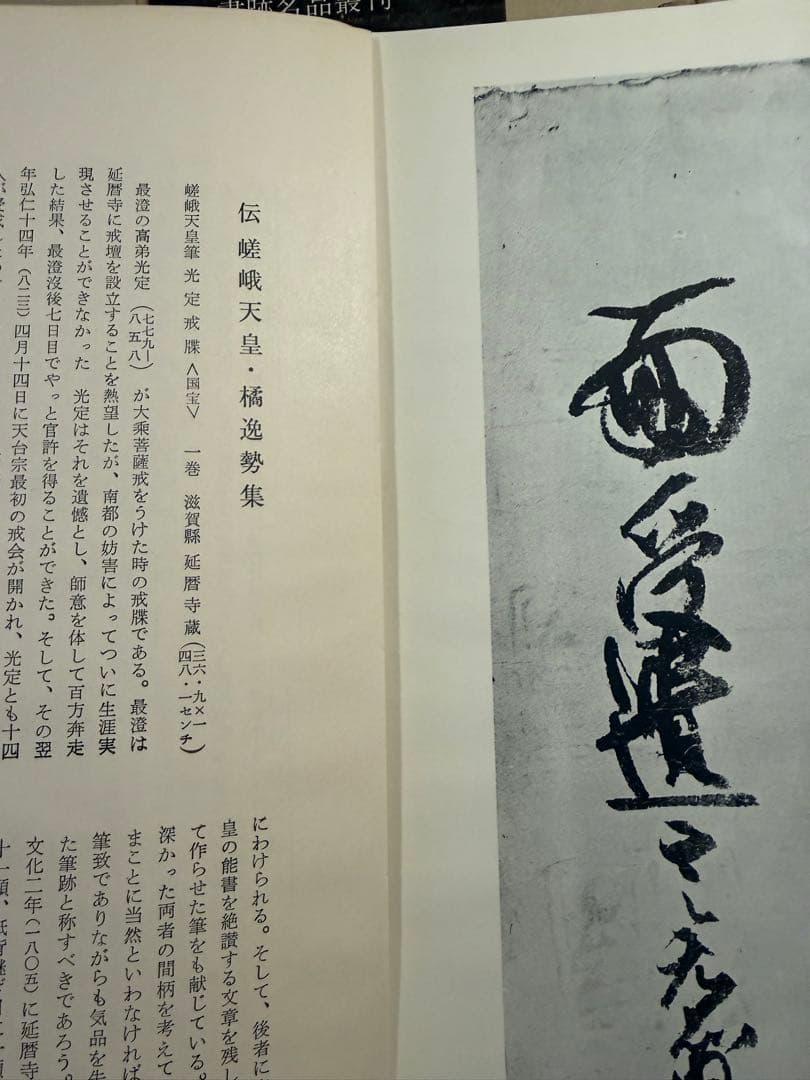 書跡名品叢刊
伝 嵯峨天皇・橘逸勢集
嵯峨天皇筆 光定戒牒<国宝> 一巻 滋賀縣 延暦寺蔵(三六・九×一四八・一センチ)
最澄の高弟光定(七七九—八五八)が大乗菩薩戒をうけた時の戒牒である。最澄は
延暦寺に戒壇を設立することを熱望したが、南都の妨害によってついに生涯実
現させることができなかった 光定はそれを遺憾とし、師意を体して百方奔走
した結果、最澄没後七日目でやっと官許を得ることができた。そして、その翌
年弘仁十四年(八二三)四月十四日に天台宗最初の戒会が開かれ、光定とも十四
にわけられる。そして、後者に
皇の能書を絶讃する文章を残し
て作らせた筆をも献じている。
深かった両者の間柄を考えて
まことに当然といわなければ
筆致でありながらも気品を
た筆跡と称すべきであろう。
文化二年(一八〇五)に延暦寺
面受遺